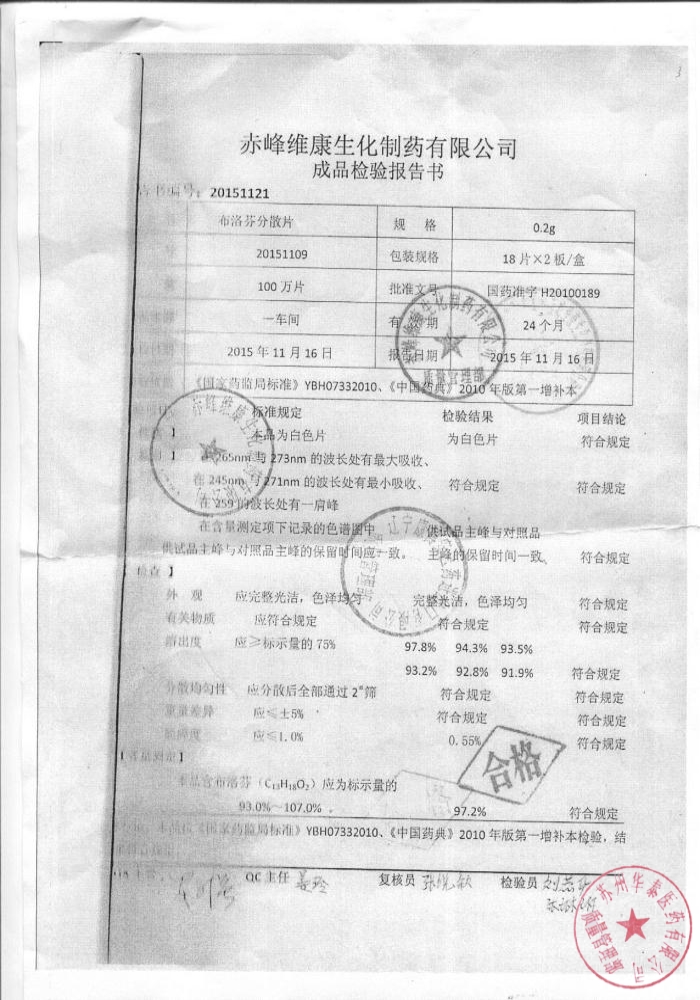 3
赤峰维康生化制药有限公司
成品检验报告书
告书编号：20151121
布洛芬分散片 规 格 0.2g
20151109 包装规格 18片×2板/盒
100万片 批准文号 国药准字H20100189
一车间 有效期 24个月
2015年11月16日 报告日期 2015年11月16日
《国家药监局标准》YBH07332010、《中国药典》2010年版第一增补本
标准规定 检验结果 项目结论
】 本品为白色片 为白色片 符合规定
】 265nm与273nm的波长处有最大吸收、
在245nm与271nm的波长处有最小吸收、 符合规定 符合规定
在259的波长处有一肩峰
在含量测定项下记录的色谱图中 供试品主峰与对照品
供试品主峰与对照品主峰的保留时间应一致。 主峰的保留时间一致、 符合规定
检查】
外 观 应完整光洁，色泽均匀 完整光洁，色泽均匀 符合规定
有关物质 应符合规定 符合规定 符合规定
溶出度 应≥标示量的75% 97.8% 94.3% 93.5%
93.2% 92.8% 91.9% 符合规定
分散均匀性 应分散后全部通过2#筛 符合规定 符合规定
重量差异 应≤±5% 符合规定 符合规定
脆碎度 应≤1.0% 0.55% 符合规定
】
合格
本品含布洛芬（C₁₃H₁₈O₂）应为标示量的
93.0%~107.0% 97.2% 符合规定
《国家药监局标准》YBH07332010、《中国药典》2010年版第一增补本检验，结
QC主任 复核员 检验员
苏州华泰医药有限公司
质量管理部